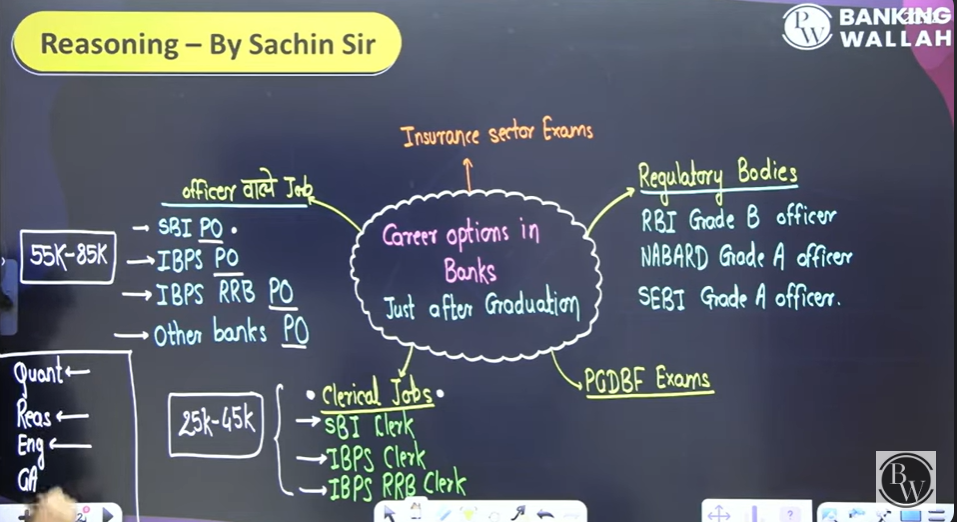 Reasoning – By Sachin Sir
BANKING
WALLAH
PW
Insurance sector Exams
officer वाले Job
SBI PO
IBPS PO
IBPS RRB PO
Other banks PO
55K-85K
Career options in
Banks
Just after Graduation
Regulatory Bodies
RBI Grade B officer
NABARD Grade A officer
SEBI Grade A officer.
Quant
Reas
Eng
GA
25K-45K
Clerical Jobs
SBI Clerk
IBPS Clerk
IBPS RRB Clerk
PGDBF Exams
BW